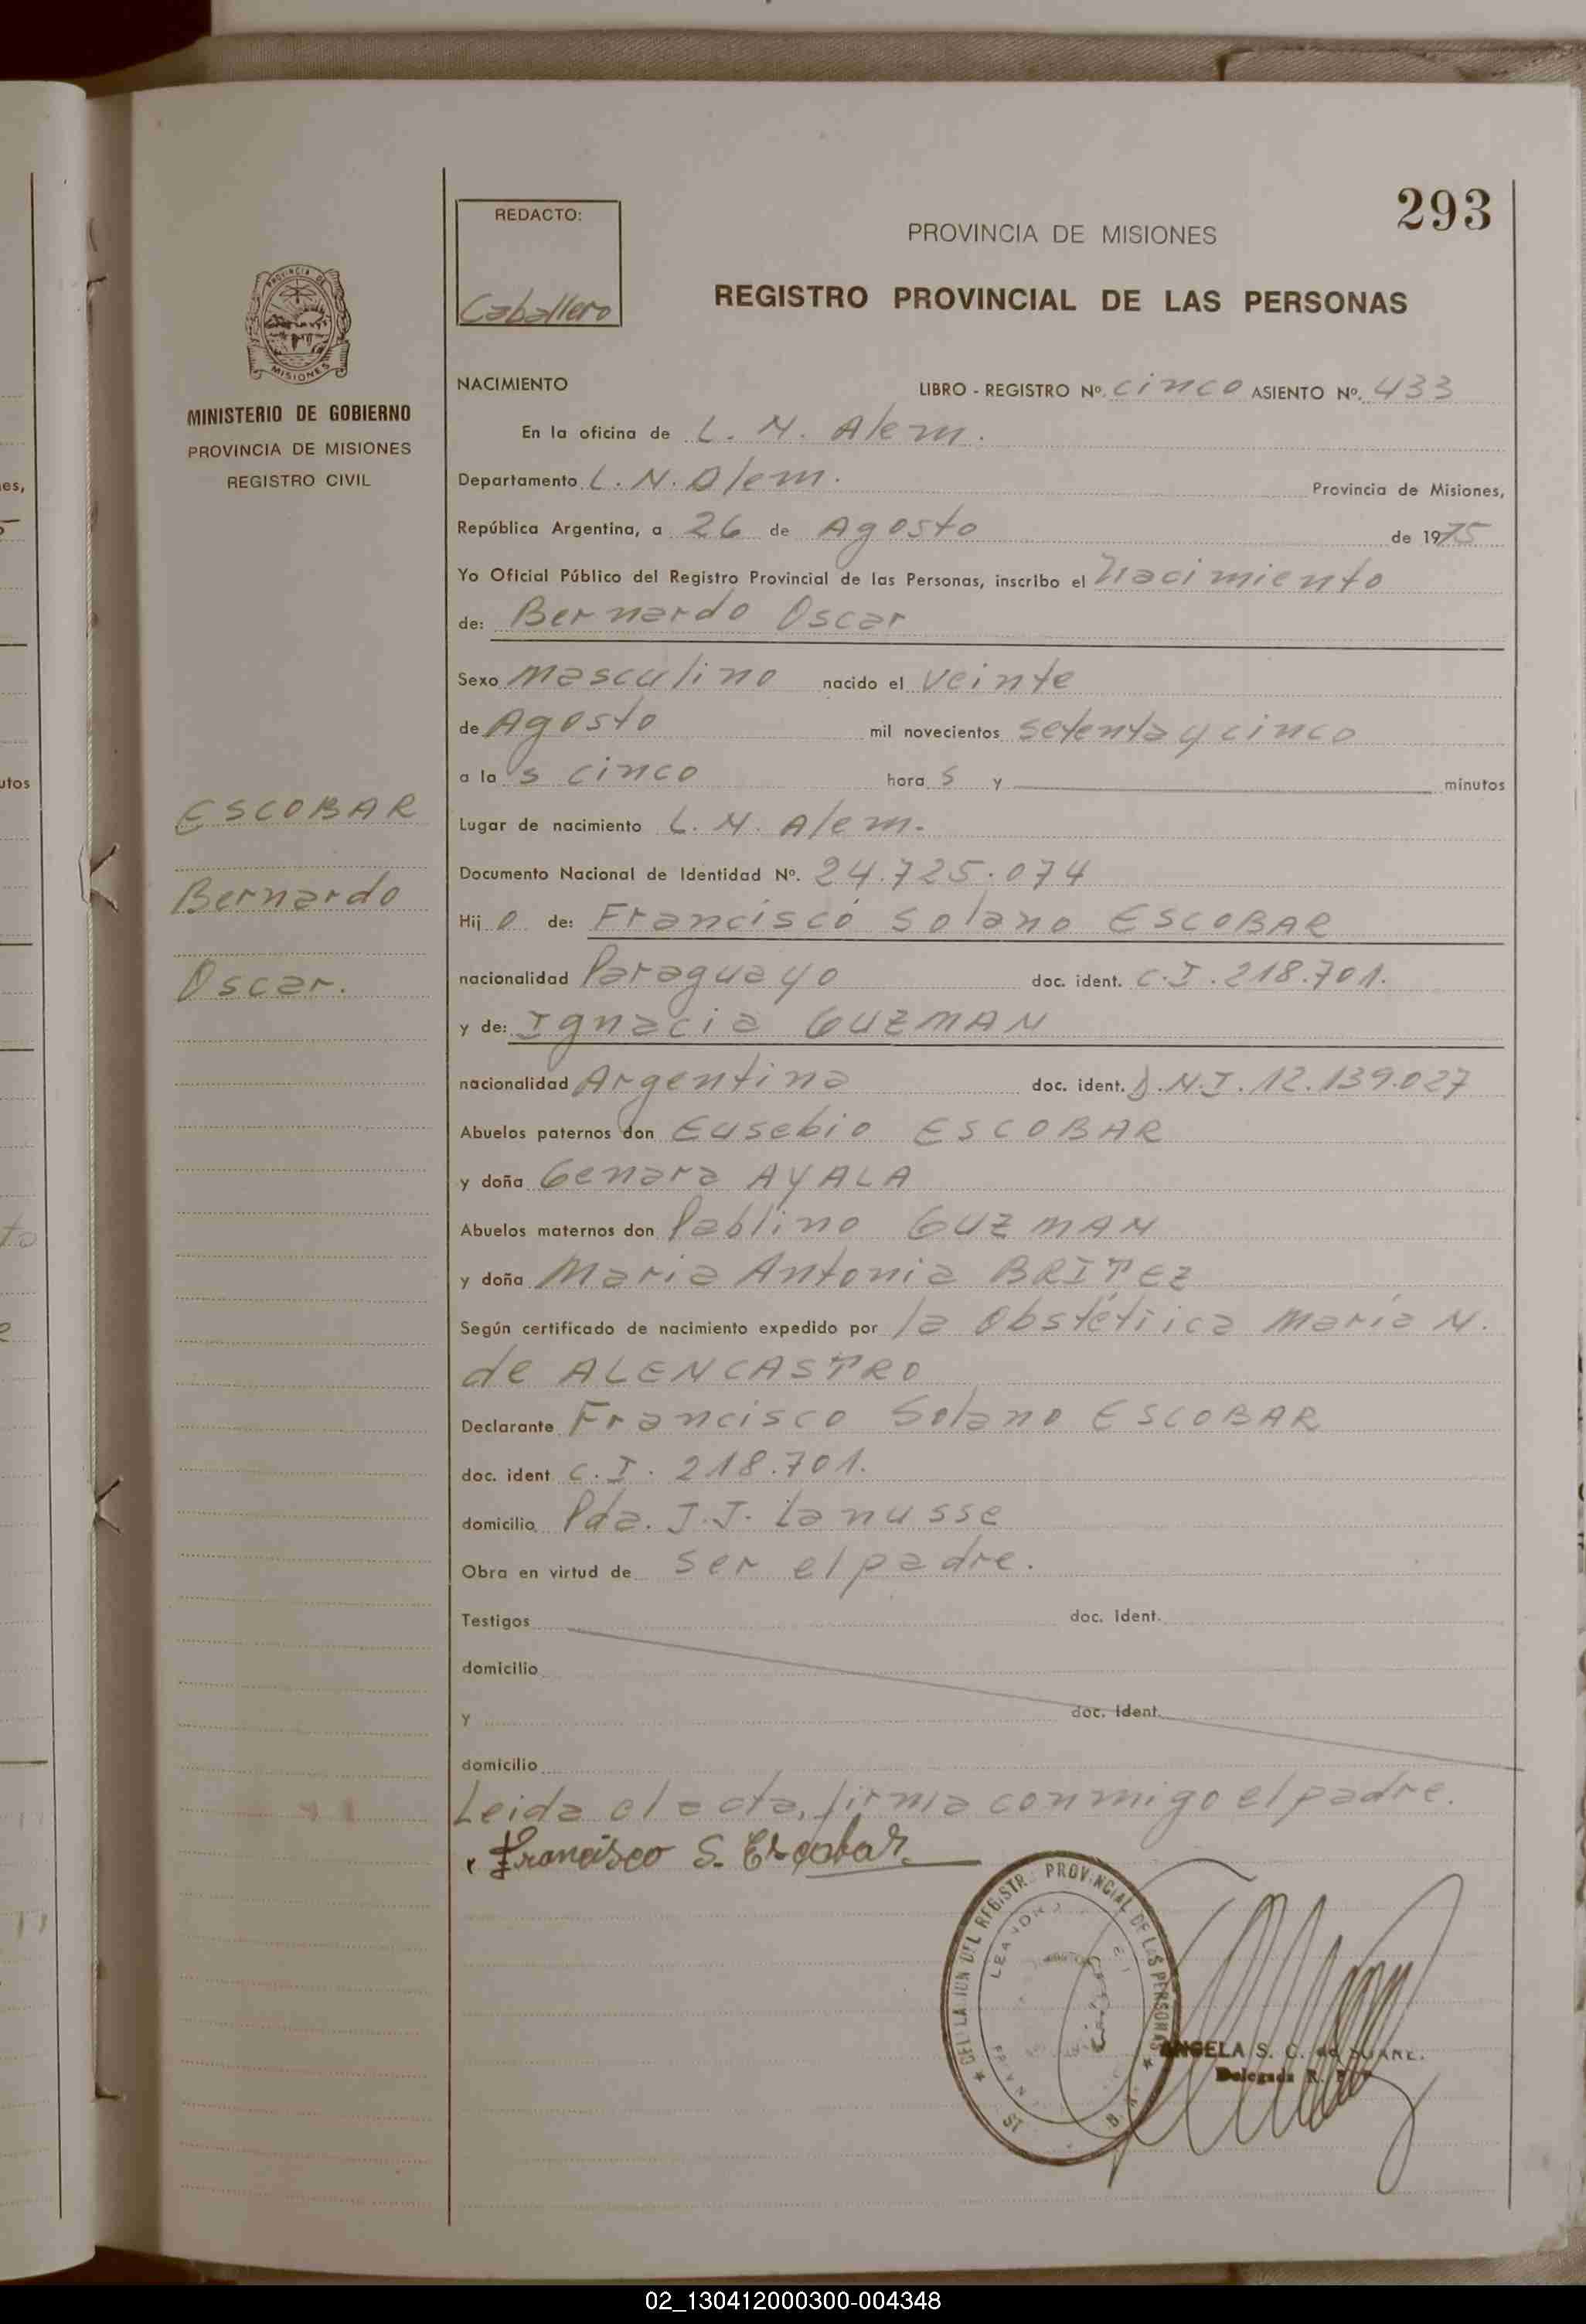 293
REDACTO:
Caballero
PROVINCIA DE MISIONES
REGISTRO PROVINCIAL DE LAS PERSONAS
PROVINCIA DE
MISIONES
MINISTERIO DE GOBIERNO
PROVINCIA DE MISIONES
REGISTRO CIVIL
ESCOBAR
Bernardo
Oscar.
NACIMIENTO LIBRO - REGISTRO Nº. cinco ASIENTO Nº. 433
En la oficina de L. N. Alem.
Departamento L. N. Alem. Provincia de Misiones,
República Argentina, a 26 de Agosto de 1975
Yo Oficial Público del Registro Provincial de las Personas, inscribo el Nacimiento
de: Bernardo Oscar
Sexo masculino nacido el veinte
de Agosto mil novecientos setenta y cinco
a las cinco horas y minutos
Lugar de nacimiento L. N. Alem.
Documento Nacional de Identidad Nº. 24.725.074
Hijo de: Francisco Solano ESCOBAR
nacionalidad Paraguayo doc. ident. C.I. 218.701.
y de: Ignacia GUZMAN
nacionalidad Argentina doc. ident. D.N.I. 12.139.027
Abuelos paternos don Eusebio ESCOBAR
y doña Genara AYALA
Abuelos maternos don Pablino GUZMAN
y doña Maria Antonia BRITEZ
Según certificado de nacimiento expedido por la Obstétrica María N.
de ALENCASTRO
Declarante Francisco Solano ESCOBAR
doc. ident C.I. 218.701.
domicilio Pda. J.J. Lanusse
Obra en virtud de ser el padre.
Testigos doc. ident.
domicilio
y doc. ident.
domicilio
Leida el acta, firma conmigo el padre.
Francisco S. Escobar
PROVINCIAL DE LAS PERSONAS
ANGELA S. C. de
Delegada R.
es,
utos
02_130412000300-004348